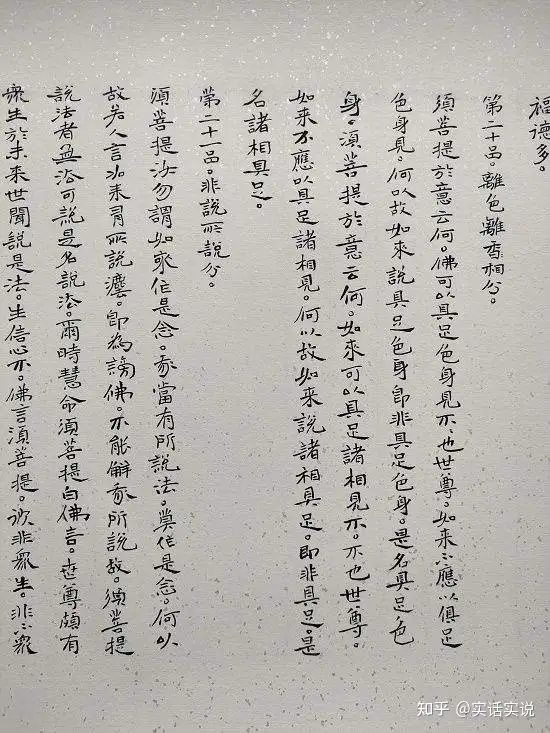 福德多。
第二十品。離色離香相分。
須菩提於意云何。佛可以具足色身見不、也世尊。如来不應以俱足
色身見。何以故如来說具足色身即非具足色身。是名具足色
身。須菩提於意云何。如来可以具足諸相見不。不也世尊。
如来不應以具足諸相見。何以故如来說諸相具足。即非具足。是
名諸相具足。
第二十一品。非說所說分。
須菩提汝勿謂如來作是念。我當有所說法。莫作是念。何以
故若人言如来有所說法。即為謗佛。不能解我所說故。須菩提
說法者無法可說是名說法。爾時慧命須菩提白佛言。世尊頗有
衆生於未来世聞說是法。生信心不。佛言須菩提。彼非衆生。非不衆
知乎 @实话实说